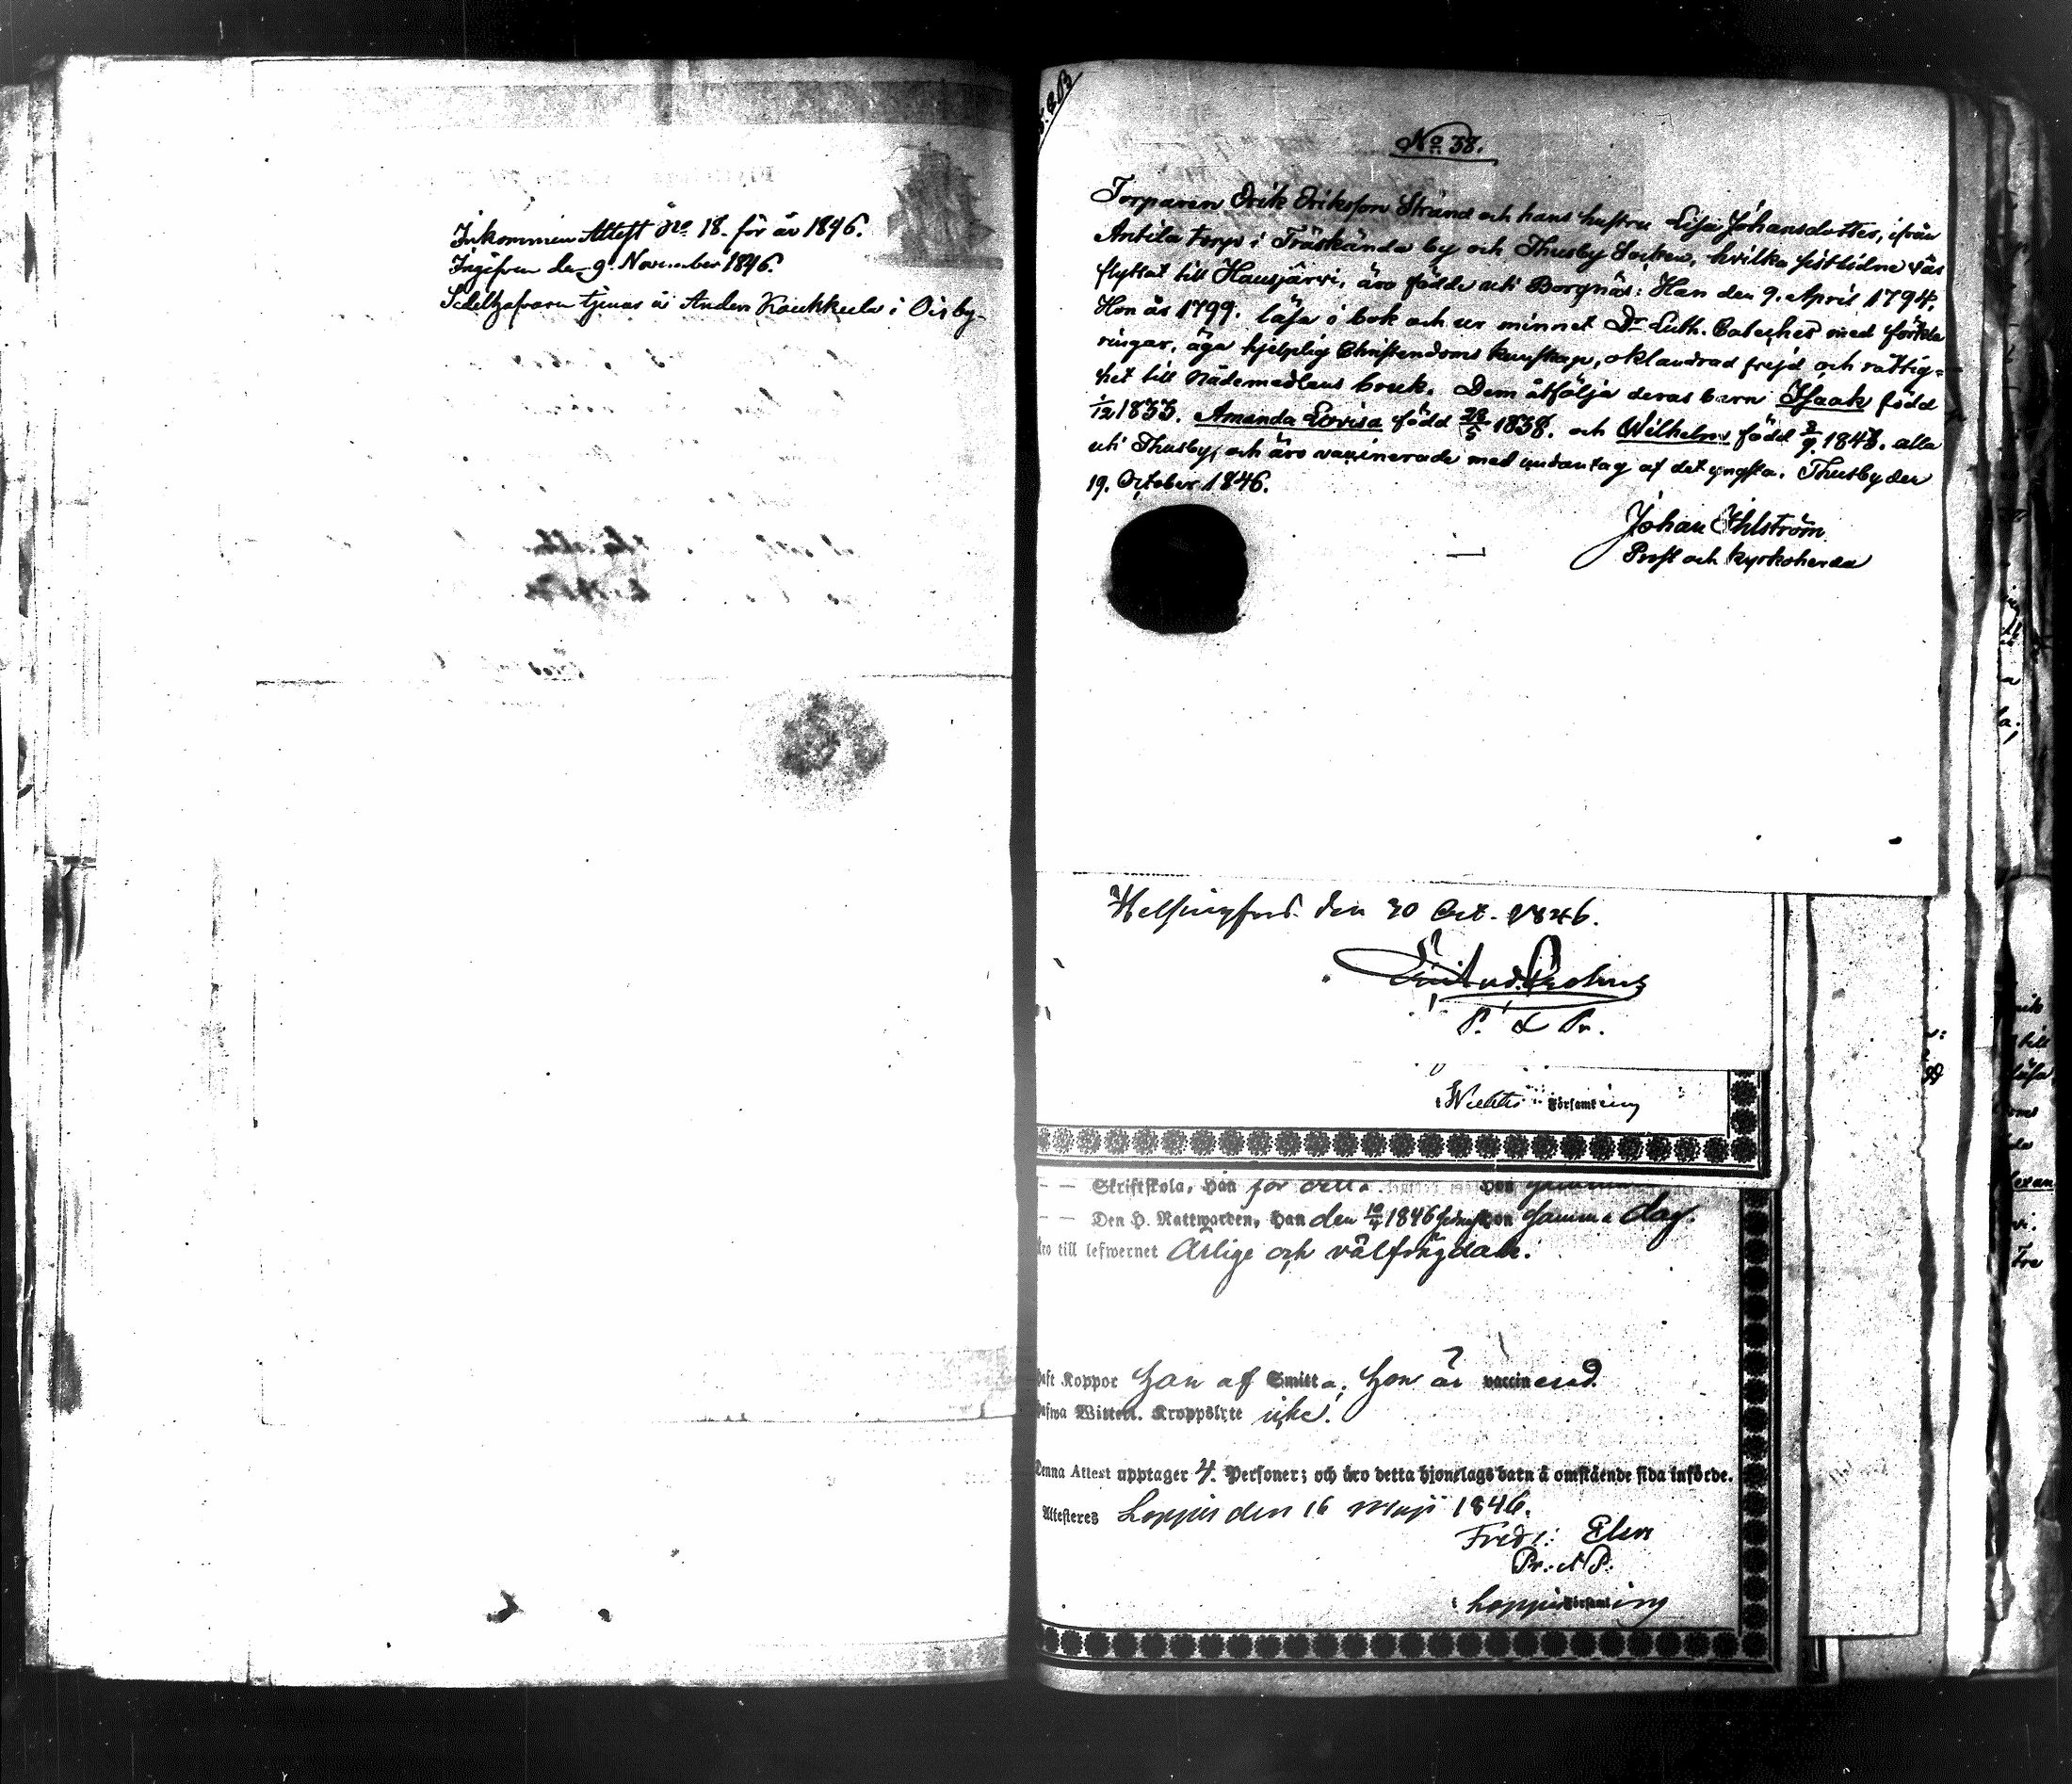 Inkommen Attest No 18. för år 1846.
Ingifven den 9. November 1846.
Sedelhafvaren tjenar å Anders Koukkula i Ois by
No 38.
Torparen Erik Eriksson Strand och hans hustru Lisa Johansdotter, ifrån
Antila torp i Träskända by och Thusby Socken, hvilka sistlidne vår
flyttat till Hausjärvi, äro födde uti Borgnäs: Han den 9. April 1794,
Hon år 1799. läsa i bok och ur minnet Dr Luth. Cateches med förkla
ringar, äga hjelplig Christendoms kunskap, oklandrad frejd och rättig=
het till Nådemedlens bruk. Dem åtfölja deras barn Isaak född
1/12 1833. Amanda Lovisa född 28/5 1838. och Wilhelm född 2/9 1843. alla
uti Thusby, och äro vaccinerade med undantag af det yngsta. Thusby den
19. October 1846.
Johan Ihlström
Prost och Kyrkoherde
Helsingfors den 30 Oct. 1846.
Wichtis Församling
Skriftskola, Han för detta
Den H. Nattwarden, Han den 10/4 1846 hon samma dag.
till lefwernet Ärlige och välfrägdade.
haft Koppor Han af Smitta; Hon är vaccinerad.
Wittert. Kroppslyte icke.
Denna Attest upptager 4. Personer; och äro detta hjonelags barn å omstående sida införde.
Attesteres Loppis den 16 Maji 1846.
Fredr: Elen
Pr. et P.
i Loppis Församling